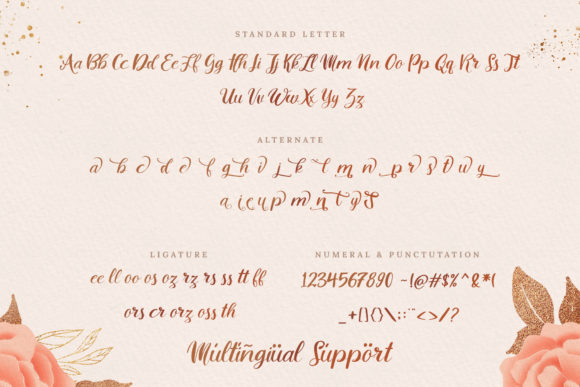 STANDARD LETTER
Aa Bb Cc Dd Ee Ff Gg Hh Ii Jj Kk Ll Mm Nn Oo Pp Qq Rr Ss Tt
Uu Vv Ww Xx Yy Zz
ALTERNATE
a b c d e f g h i j k l m n p r s t u w y
a i c u p m n t y S
LIGATURE
ee ll oo os oz rz rs ss tt ff
ors cr orz oss th
NUMERAL & PUNCTUTATION
1234567890 ~!@#$%^&*(
_+[]{}\:;¨<>/?
Múltîñgïüal Súppört